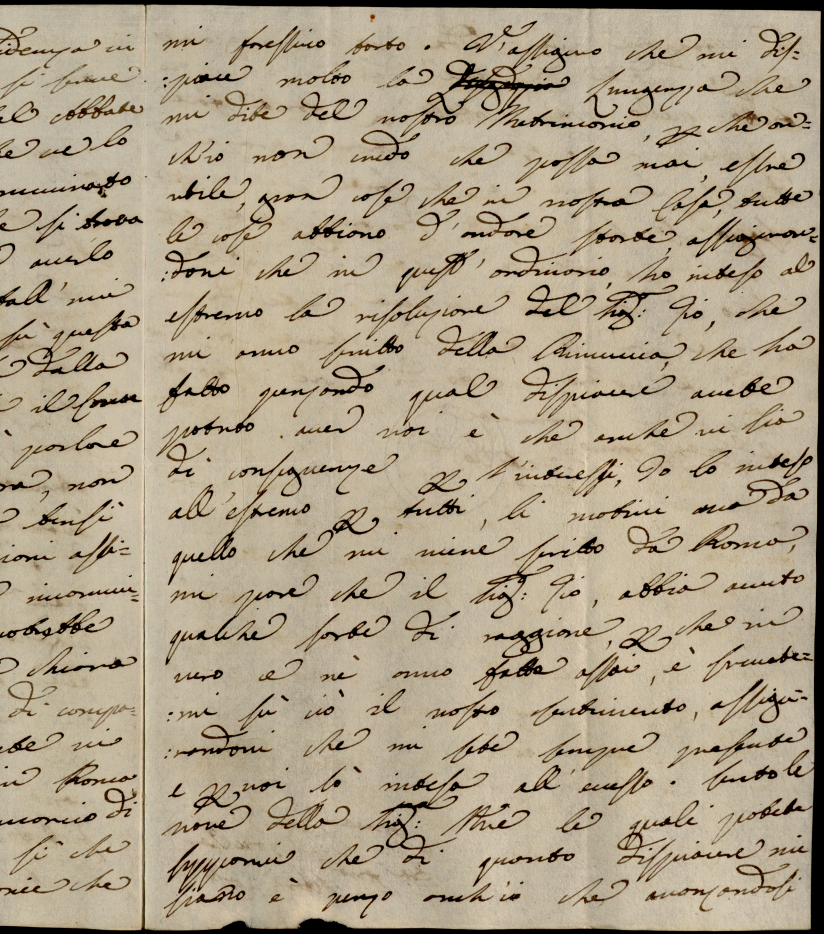 idenza in
si
el Abbate
ve lo
to
e si trova
averlo
tall' mi
sù questa
dalla
il
parlare
ra, non
bensì
ioni assi=
potrebbe
chiara
di compa=
in Roma
di
sì che
che
mi facessino torto. V'assiguro che mi dis=
:piace molto la lungezza che
mi dite del nostro Matrimonio, che an=
ch'io non credo che possa mai, essere
utile, gran cosa che in nostra Casa, tutte
le cose abbiano d'andare storte, assiguran=
:doni che in quest' ordinario, ho inteso al
estremo la risoluzione del Sig: Zio, che
mi anno scritto della Rinuncia, che ha
fatto penzando qual dispiacere avete
potuto aver voi è che anche vi sia
di conseguenze p l'interessi, Io lo inteso
all'estremo p tutti, li motivi ma da
quello che mi viene scritto da Roma,
mi pare che il Sig: Zio, abbia avuto
qualche sorte di raggione, p che in
vero ce nè anno fatte assai, è scrivete=
:mi sù ciò il vostro sentimento, assigu=
:randoni che mi sete sempre presente
e p voi lò intesa all'ecesso. Sento le
nove della Sig: Ave le quali potete
che di quanto dispiacere mi
siano è penzo anch'io che avanzandosi